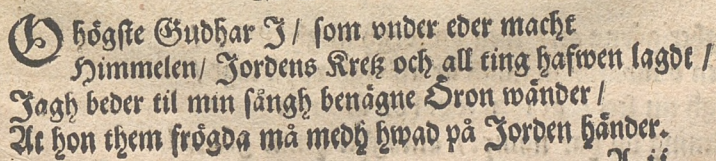 O högste Gudhar J/ som vnder eder macht
Himmelen/ Jordens Kretz och all ting hafwen lagdt /
Jagh beder til min sångh benägne Öron wänder /
At hon them frögda må medh hwad på Jorden händer.